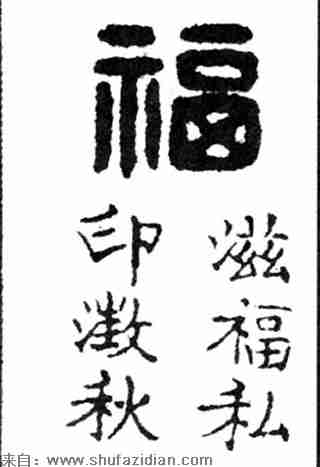 福
滋福私
印澂秋
来自：www.shufazidian.com